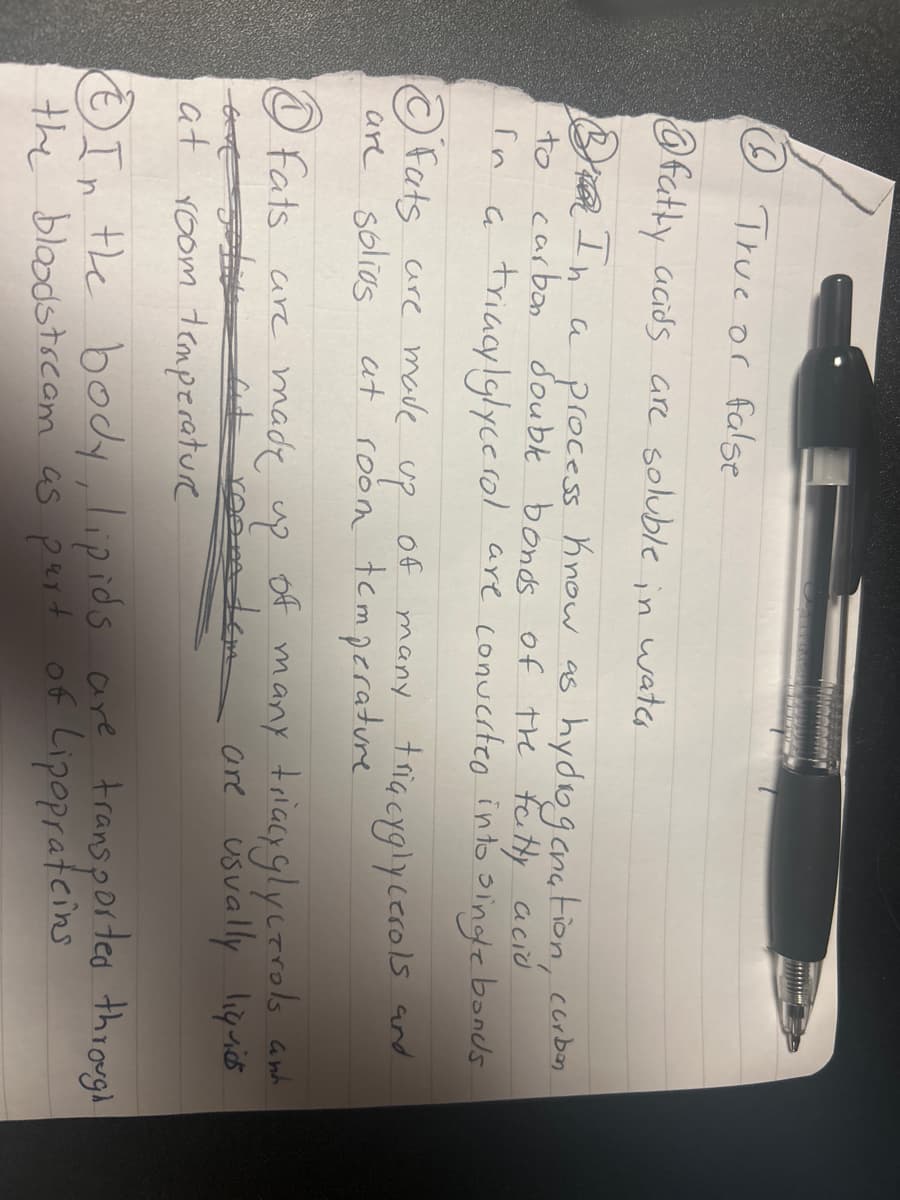 6 True or false
a fatty acids are soluble in water
B In a process know as hydrogenation, carbon
to carbon double bonds of the fatty acid
in a triaylglycerol are converted into single bonds
C fats are made up of many triacyglycerols and
are solids at room temperature
D fats are made up of many triacyglycerols and
are usually liquids
at room temperature
E In the body, lipids are transported through
the bloodstream as part of Lipoprateins